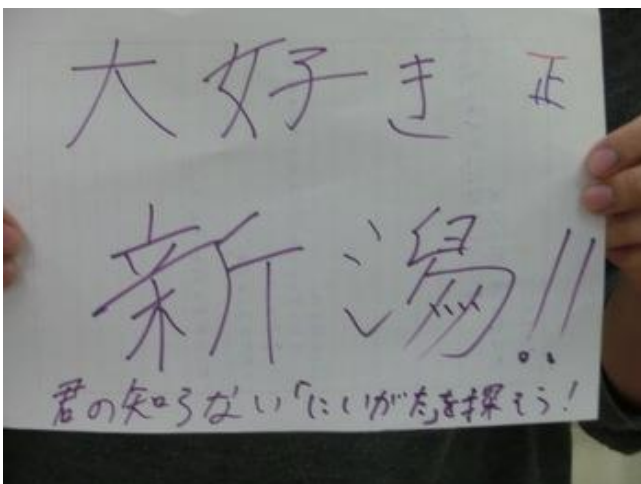 大好き 正
新潟!!
君の知らない「にいがた」を探そう!